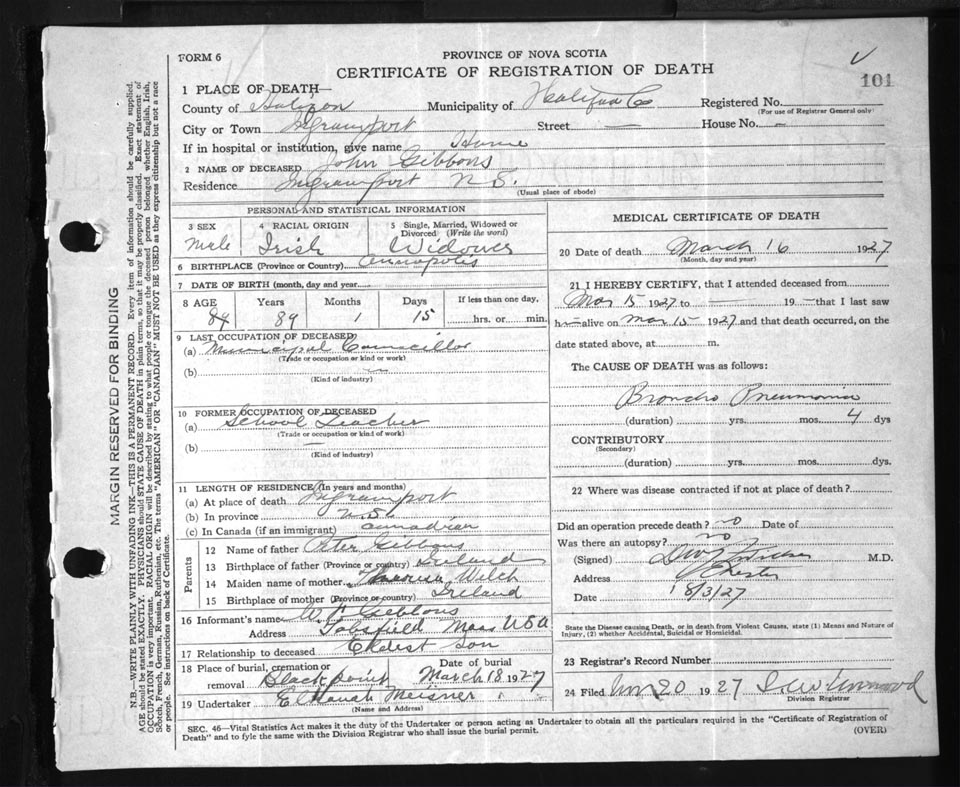 FORM 6
PROVINCE OF NOVA SCOTIA
CERTIFICATE OF REGISTRATION OF DEATH
101
1 PLACE OF DEATH—
County of Halifax Municipality of Halifax Co Registered No.
(For use of Registrar General only)
City or Town Ingramport Street — House No. –
If in hospital or institution, give name Home
2 NAME OF DECEASED John Gibbons
Residence Ingramport N S.
(Usual place of abode)
PERSONAL AND STATISTICAL INFORMATION
3 SEX Male
4 RACIAL ORIGIN Irish
5 Single, Married, Widowed or Divorced (Write the word) Widower
6 BIRTHPLACE (Province or Country) Annapolis
7 DATE OF BIRTH (month, day and year)
8 AGE Years Months Days If less than one day,
89 89 1 15 hrs. or min.
9 LAST OCCUPATION OF DECEASED
(a) Municipal Councillor
(Trade or occupation or kind or work)
(b) —
(Kind of industry)
10 FORMER OCCUPATION OF DECEASED
(a) School Teacher
(Trade or occupation or kind of work)
(b) —
(Kind of industry)
11 LENGTH OF RESIDENCE (In years and months)
(a) At place of death Ingramport
(b) In province N.S.
(c) In Canada (if an immigrant) Canadian
Parents
12 Name of father Peter Gibbons
13 Birthplace of father (Province or country) Ireland
14 Maiden name of mother Welch
15 Birthplace of mother (Province or country) Ireland
16 Informant's name W. F. Gibbons
Address Mass USA
17 Relationship to deceased Eldest Son
18 Place of burial, cremation or removal Black point
Date of burial March 18 1927
19 Undertaker Meisner
(Name and Address)
MEDICAL CERTIFICATE OF DEATH
20 Date of death March 16 1927
(Month, day and year)
21 I HEREBY CERTIFY, that I attended deceased from
Mar 15 1927 to — 19 – that I last saw
h im alive on Mar 15 1927 and that death occurred, on the
date stated above, at m.
The CAUSE OF DEATH was as follows:
Broncho Pneumonia
(duration) yrs. mos. 4 dys
CONTRIBUTORY
(Secondary)
(duration) yrs. mos. dys.
22 Where was disease contracted if not at place of death?
Did an operation precede death? no Date of
Was there an autopsy? no
(Signed) M.D.
Address Chester
Date 18/3/27
State the Disease causing Death, or in death from Violent Causes, state (1) Means and Nature of
Injury, (2) whether Accidental, Suicidal or Homicidal.
23 Registrar's Record Number
24 Filed 20 1927
Division Registrar
SEC. 46—Vital Statistics Act makes it the duty of the Undertaker or person acting as Undertaker to obtain all the particulars required in the "Certificate of Registration of
Death" and to fyle the same with the Division Registrar who shall issue the burial permit.
(OVER)
MARGIN RESERVED FOR BINDING
N.B.—WRITE PLAINLY WITH UNFADING INK—THIS IS A PERMANENT RECORD. Every item of information should be carefully supplied.
AGE should be stated EXACTLY. PHYSICIANS should STATE CAUSE OF DEATH in plain terms, so that it may be properly classified. Exact statement of
OCCUPATION is very important. RACIAL ORIGIN will be described by stating to what people or tongue the deceased person belonged whether English, Irish,
Scotch, French, German, Russian, Ruthenian, etc. The terms "AMERICAN" OR "CANADIAN" MUST NOT BE USED as they express citizenship but not a race
or people. See instructions on back of Certificate.